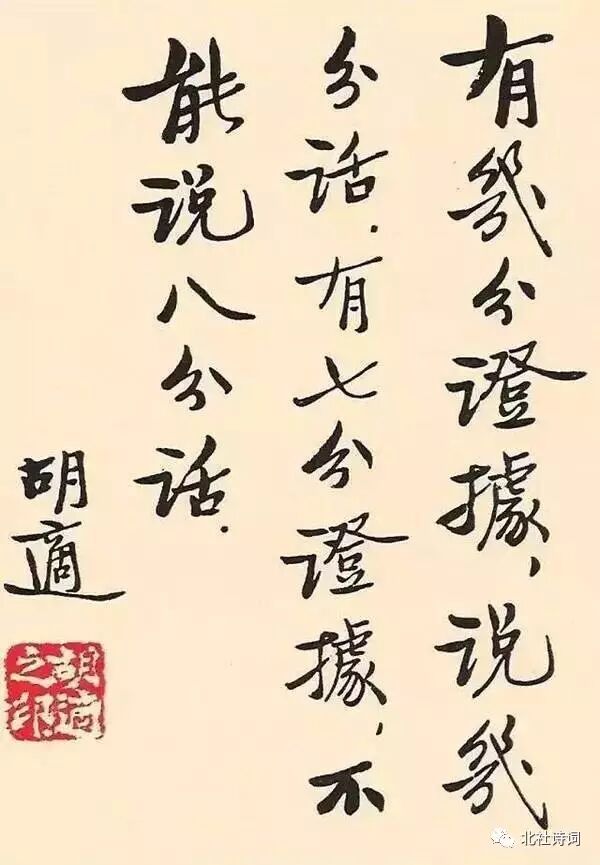 有幾分證據，说幾
分话．有七分證據，不
能说八分话．
胡適
胡適
之印
北社诗词